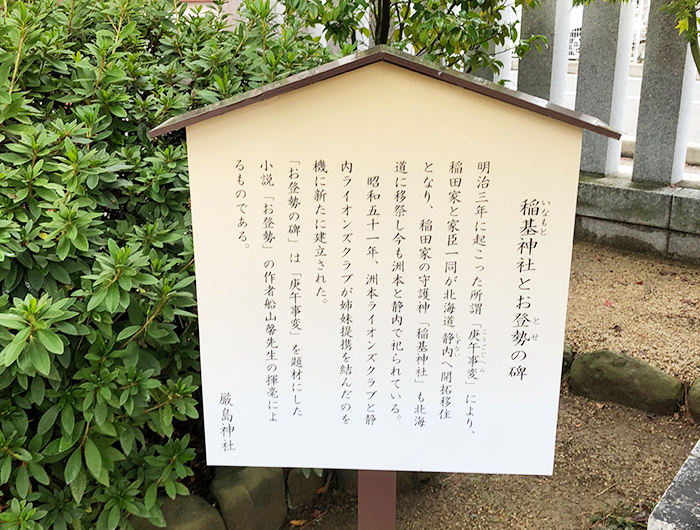 稲基神社とお登勢の碑
いなもと
とせ
明治三年に起こった所謂「庚午事変」により、
こうごじへん
稲田家と家臣一同が北海道静内へ開拓移住
しずない
となり、稲田家の守護神「稲基神社」も北海
道に移祭し今も洲本と静内で祀られている。
昭和五十一年、洲本ライオンズクラブと静
内ライオンズクラブが姉妹提携を結んだのを
機に新たに建立された。
「お登勢の碑」は「庚午事変」を題材にした
小説「お登勢」の作者船山馨先生の揮毫によ
るものである。
厳島神社